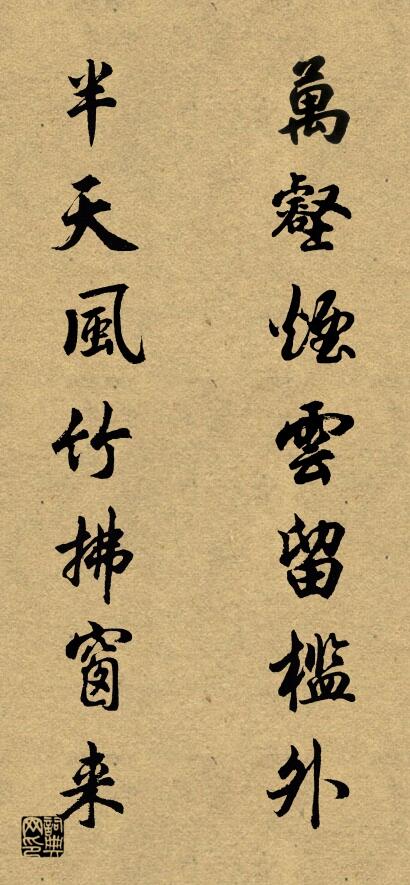 萬壑煙雲留檻外
半天風竹拂窗来
詞典网印